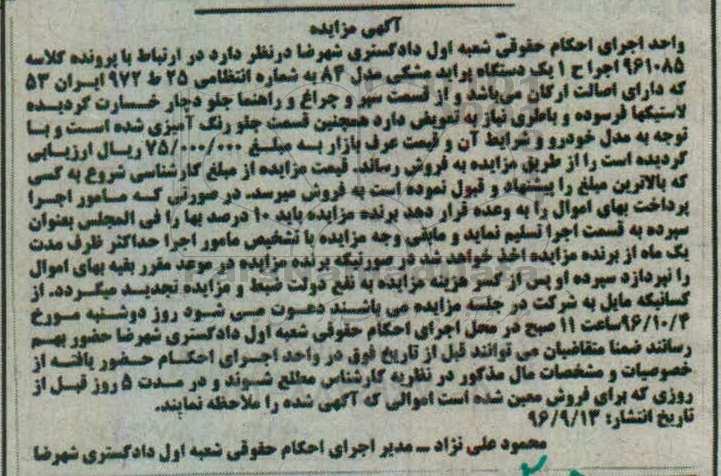 آگهی مزایده
واحد اجرای احکام حقوقی شعبه اول دادگستری شهرضا درنظر دارد در ارتباط با پرونده کلاسه
۹۶۱۰۸۵ اجرا ح ۱ یک دستگاه پراید مشکی مدل ۸۴ به شماره انتظامی ۲۵ ط ۹۷۲ ایران ۵۳
که دارای اصالت ارکان می‌باشد و از قسمت سپر و چراغ و راهنما جلو دچار خسارت گردیده
لاستیکها فرسوده و باطری نیاز به تعویض دارد همچنین قسمت جلو رنگ آمیزی شده است و با
توجه به مدل خودرو و شرایط آن و قیمت عرف بازار به مبلغ ۷۵/۰۰۰/۰۰۰ ریال ارزیابی
گردیده است را از طریق مزایده به فروش رساند. قیمت مزایده از مبلغ کارشناسی شروع به کسی
که بالاترین مبلغ را پیشنهاد و قبول نموده است به فروش میرسد. در صورتی که مامور اجرا
پرداخت بهای اموال را به وعده قرار دهد برنده مزایده باید ۱۰ درصد بها را فی المجلس بعنوان
سپرده به قسمت اجرا تسلیم نماید و مابقی وجه مزایده با تشخیص مامور اجرا حداکثر ظرف مدت
یک ماه از برنده مزایده اخذ خواهد شد در صورتیکه برنده مزایده در موعد مقرر بقیه بهای اموال
را نپردازد سپرده او پس از کسر هزینه مزایده به نفع دولت ضبط و مزایده تجدید میگردد. از
کسانیکه مایل به شرکت در جلسه مزایده می باشند دعوت می شود روز دوشنبه مورخ
۹۶/۱۰/۴ساعت ۱۱ صبح در محل اجرای احکام حقوقی شعبه اول دادگستری شهرضا حضور بهم
رسانند ضمنا متقاضیان می توانند قبل از تاریخ فوق در واحد اجرای احکام حضور یافته از
خصوصیات و مشخصات مال مذکور در نظریه کارشناس مطلع شوند و در مدت ۵ روز قبل از
روزی که برای فروش معین شده است اموالی که آگهی شده را ملاحظه نمایند.
تاریخ انتشار: ۹۶/۹/۱۳
محمود علی نژاد – مدیر اجرای احکام حقوقی شعبه اول دادگستری شهرضا